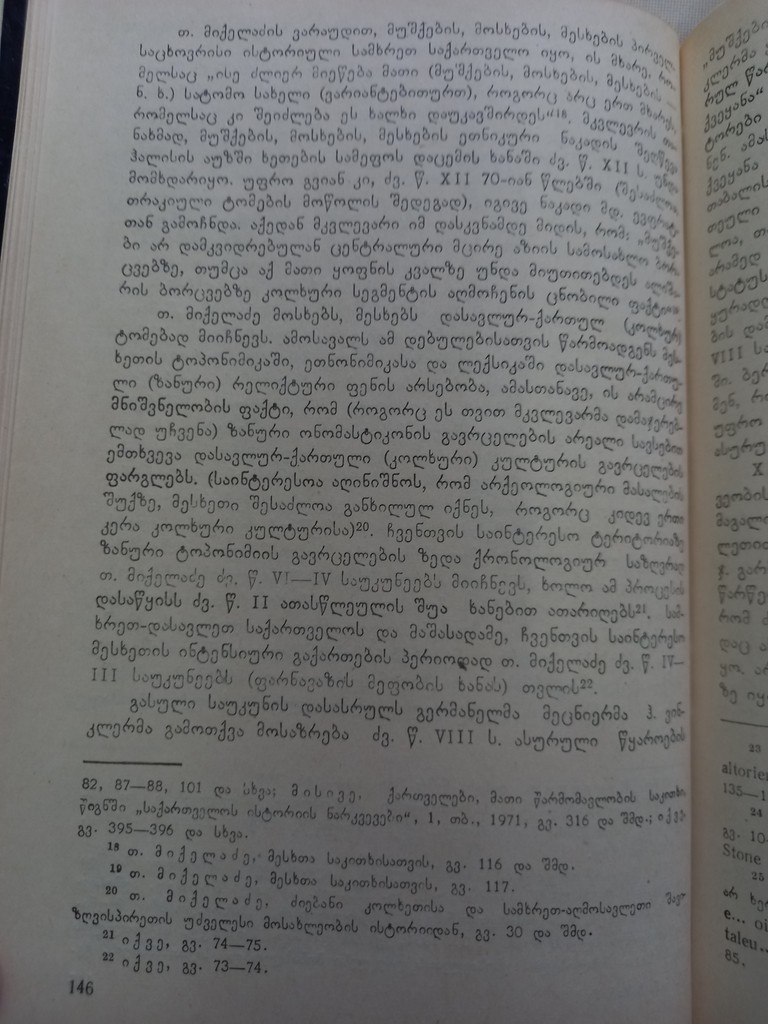 თ. მიქელაძის ვარაუდით, მუშქების, მოსხების, მესხების პირველ
საცხოვრისი ისტორიული სამხრეთ საქართველო იყო, ის მხარე,
მელსაც „ისე ძლიერ მიეწება მათი (მუშქების, მოსხების, მესხების —
ნ. ხ.) სატომო სახელი (ვარიანტებითურთ), როგორც არც ერთ მხარეს,
რომელსაც კი შეიძლება ეს ხალხი დაუკავშირდეს“18. მკვლევრის
ნახმად, მუშქების, მოსხების, მესხების ეთნიკური ნაკადის შეღწევა
ჰალისის აუზში ხეთების სამეფოს დაცემის ხანაში ძვ. წ. XII ს. უნდა
მომხდარიყო. უფრო გვიან კი, ძვ. წ. XII 70-იან წლებში (შესაძლოა
თრაკიული ტომების მოწოლის შედეგად), იგივე ნაკადი მდ. ევფრატ-
თან გამოჩნდა. აქედან მკვლევარი იმ დასკვნამდე მიდის, რომ: „მუშქე-
ბი არ დამკვიდრებულან ცენტრალური მცირე აზიის სამოსახლო ბორ-
ცვებზე, თუმცა აქ მათი ყოფნის კვალზე უნდა მიუთითებდეს ალიშა-
რის ბორცვებზე კოლხური სეგმენტის აღმოჩენის ცნობილი
თ. მიქელაძე მოსხებს, მესხებს დასავლურ-ქართულ (კოლხურ)
ტომებად მიიჩნევს. ამოსავალს ამ დებულებისათვის წარმოადგენს მეს-
ხეთის ტოპონიმიკაში, ეთნონიმიკასა და ლექსიკაში დასავლურ-ქართუ-
ლი (ზანური) რელიქტური ფენის არსებობა, ამასთანავე, ის არამცირე
მნიშვნელობის ფაქტი, რომ (როგორც ეს თვით მკვლევარმა დამაჯერებ-
ლად უჩვენა) ზანური ონომასტიკონის გავრცელების არეალი სავსებით
ემთხვევა დასავლურ-ქართული (კოლხური) კულტურის გავრცელების
ფარგლებს. (საინტერესოა აღინიშნოს, რომ არქეოლოგიური მასალების
შუქზე, მესხეთი შესაძლოა განხილულ იქნეს, როგორც კიდევ ერთი
კერა კოლხური კულტურისა)20. ჩვენთვის საინტერესო ტერიტორიაზე
ზანური ტოპონიმიის გავრცელების ზედა ქრონოლოგიურ საზღვრად
თ. მიქელაძე ძვ. წ. VI—IV საუკუნეებს მიიჩნევს, ხოლო ამ პროცესის
დასაწყისს ძვ. წ. II ათასწლეულის შუა ხანებით ათარიღებს21. სამ-
ხრეთ-დასავლეთ საქართველოს და მაშასადამე, ჩვენთვის საინტერესო
მესხეთის ინტენსიური გაქართების პერიოდად თ. მიქელაძე ძვ. წ. IV—
III საუკუნეებს (ფარნავაზის მეფობის ხანას) თვლის22.
გასული საუკუნის დასასრულს გერმანელმა მეცნიერმა ჰ. ვინ-
კლერმა გამოთქვა მოსაზრება ძვ. წ. VIII ს. ასურული წყაროების
82, 87—88, 101 და სხვა; მისივე, ქართველები, მათი წარმომავლობის საკითხი
წიგნში „საქართველოს ისტორიის ნარკვევები“, 1, თბ., 1971, გვ. 316 და შმდ.; იქვე,
გვ. 395—396 და სხვა.
18 თ. მიქელაძე, მესხთა საკითხისათვის, გვ. 116 და შმდ.
19 თ. მიქელაძე, მესხთა საკითხისათვის, გვ. 117.
20 თ. მიქელაძე, ძიებანი კოლხეთისა და სამხრეთ-აღმოსავლეთი შავ-
ზღვისპირეთის უძველესი მოსახლეობის ისტორიიდან, გვ. 30 და შმდ.
21 იქვე, გვ. 74—75.
22 იქვე, გვ. 73—74.
146